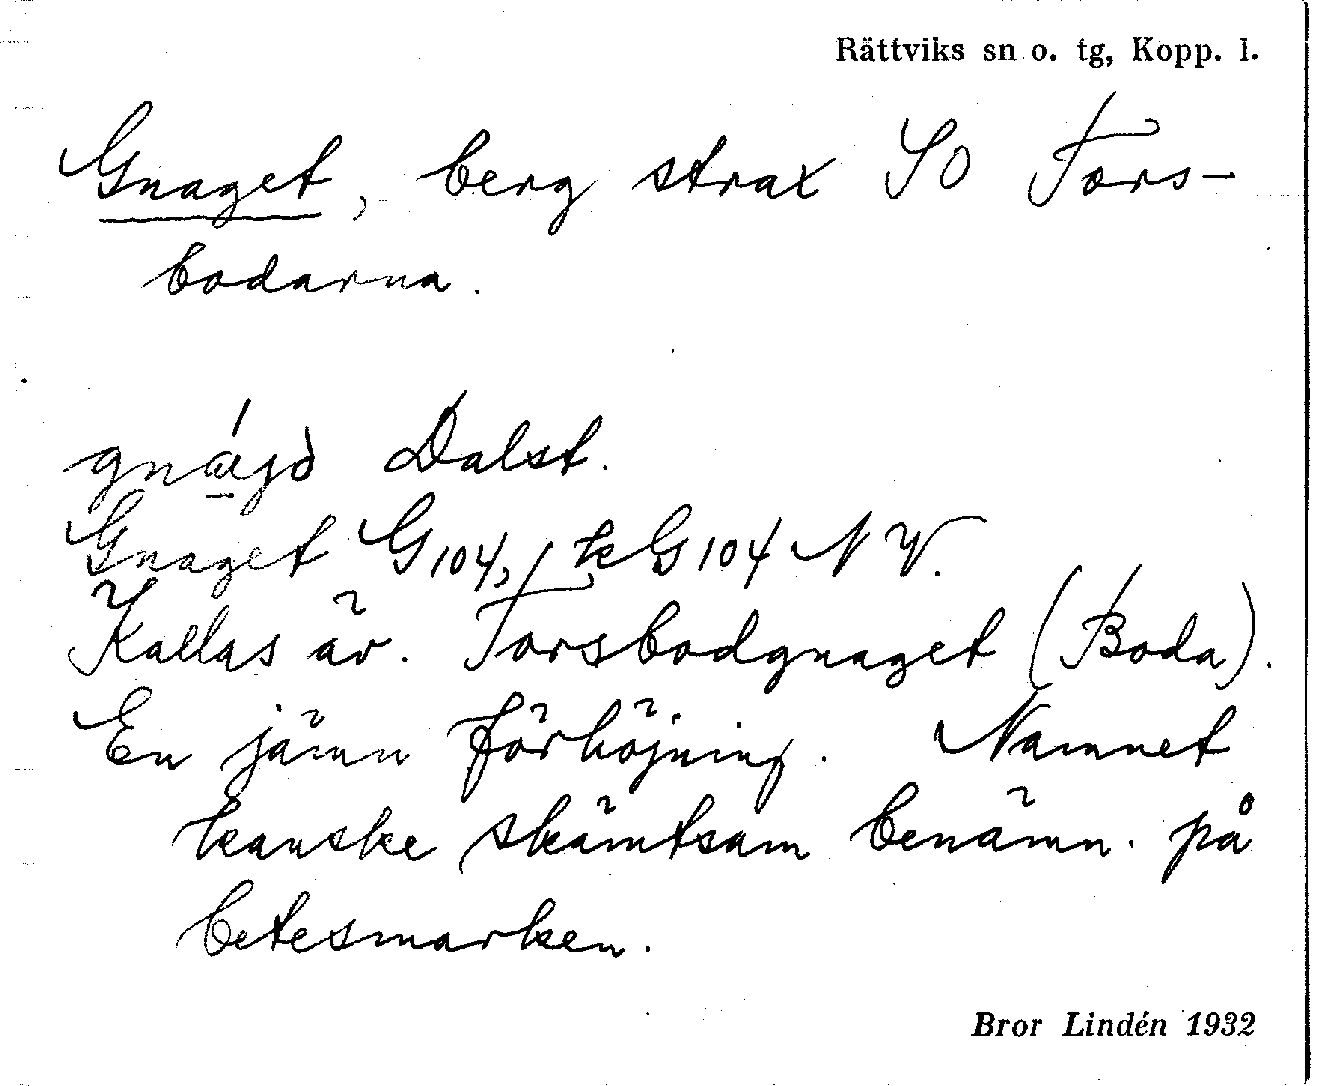 Rättviks sn o. tg, Kopp. l.
Gnaget, berg strax SO Fors-
bodarna.
Dalst.
Gnaget G104, k G104 NV.
Kallas äv. Forsbodgnaget (Boda).
En jämn förhöjning. Namnet
kanske skämtsam benämn. på
betesmarken.
Bror Lindén 1932